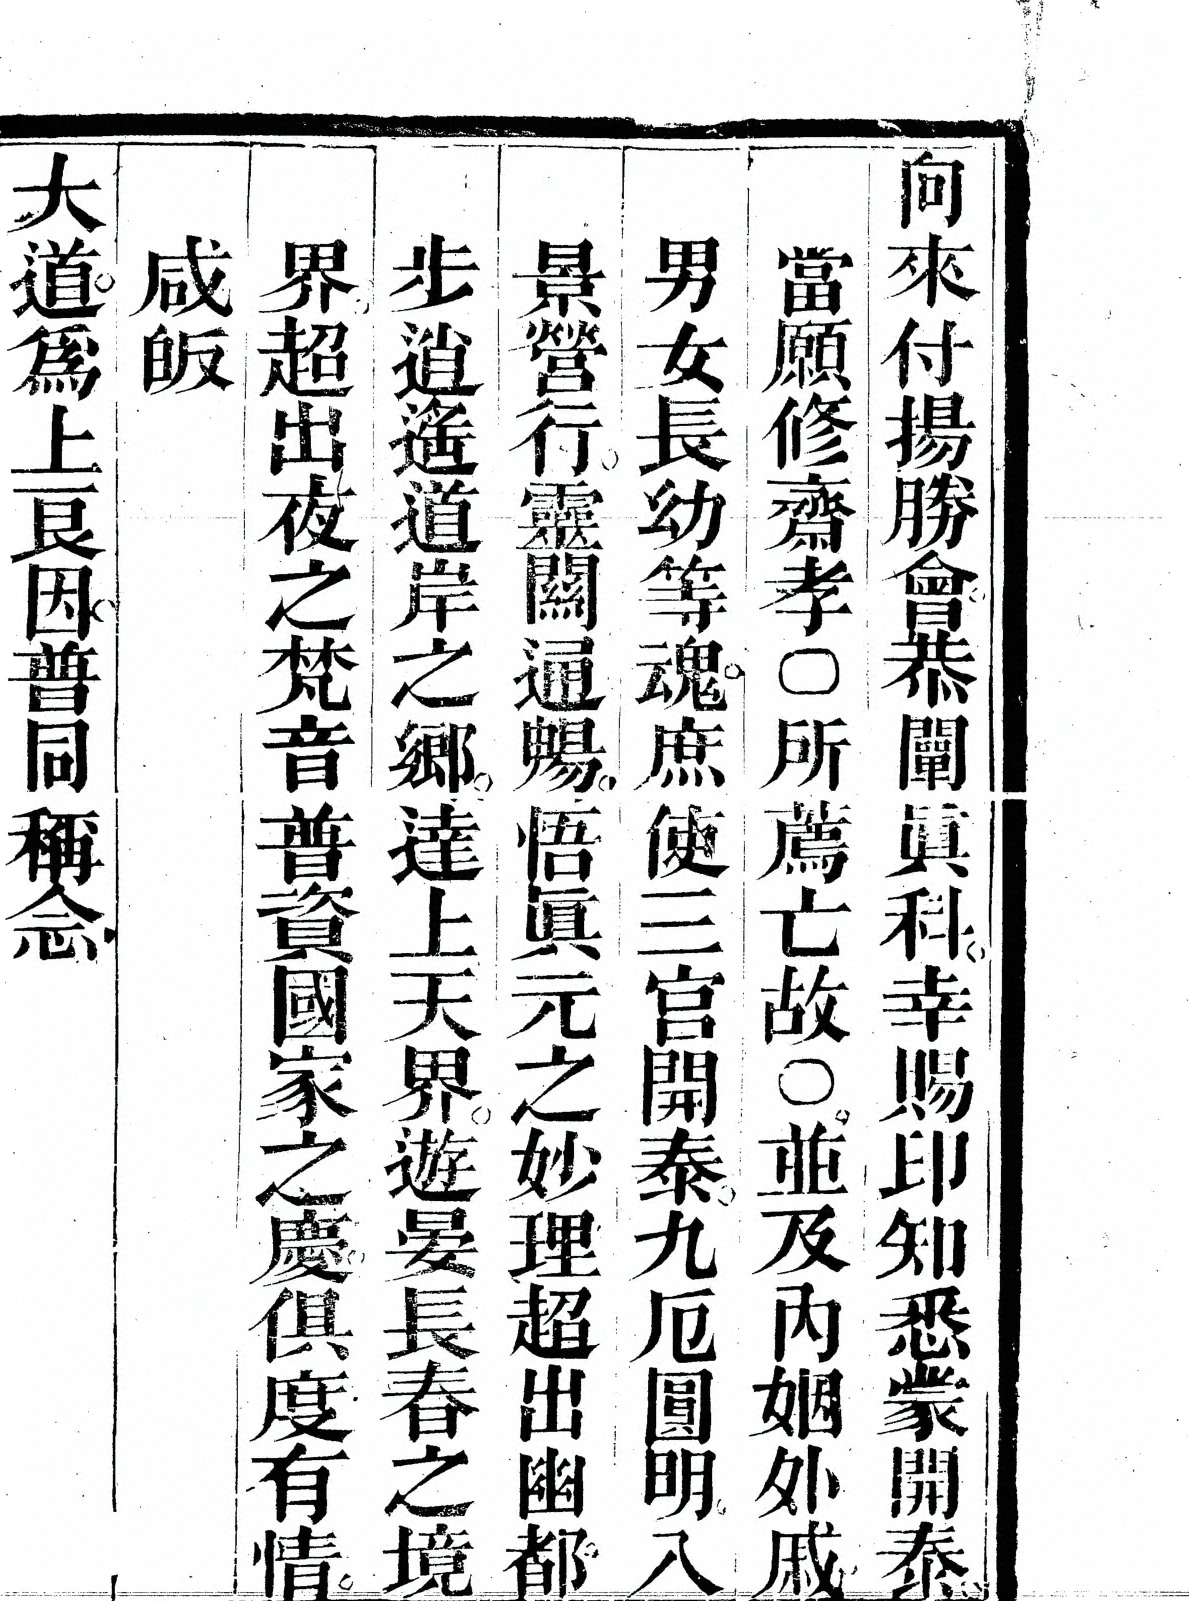 向來付揚勝會。恭闡眞科。幸賜印知悉蒙開泰。
當願修齋孝〇所薦亡故〇。並及內姻外戚
男女長幼等魂。庶使三官開泰。九厄圓明。八
景營行。靈關通暢。悟眞元之妙理超出幽都。
步逍遙道岸之鄉。達上天界。遊晏長春之境
界。超出夜之梵音普資國家之慶。俱度有情。
咸皈
大道。爲上良因。普同稱念。